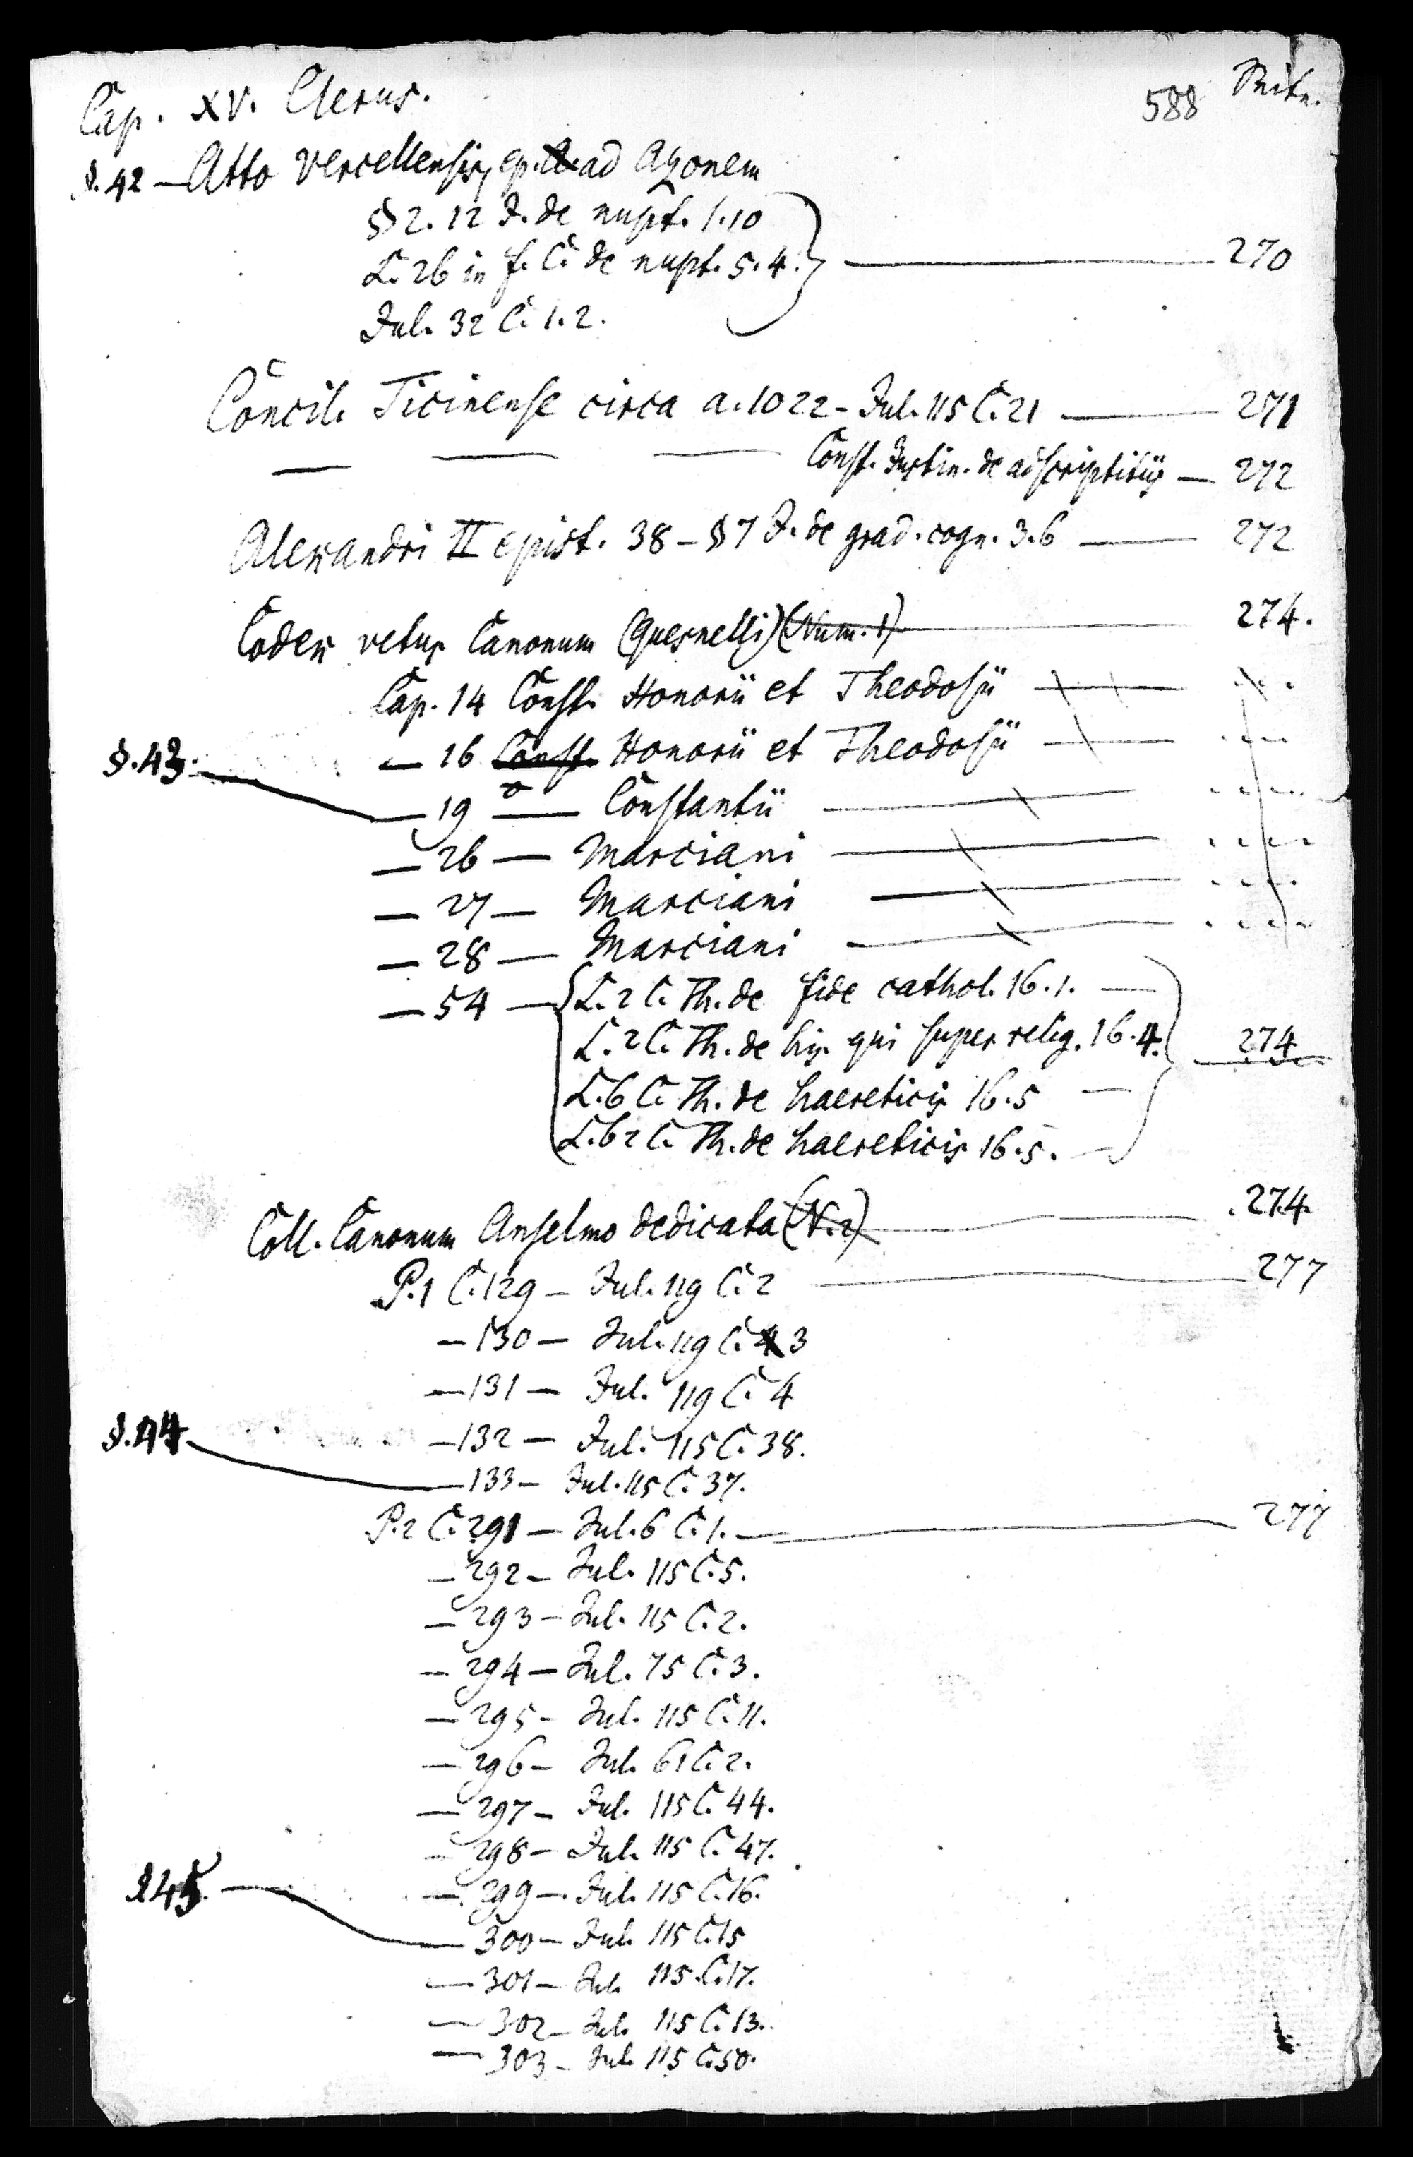 Cap. XV. Clerus. 588 Seite.
§.42 — Atto Vercellensis, ep. ad Azonem
§ 2. 12 J. de nupt. 1.10
L. 26 in f. C. de nupt. 5.4. — 270
Jul. 32 C. 1. 2.
Concil. Ticinense circa a. 1022 - Jul. 115 C. 21 — 271
— — — Const. Justin. de adscriptitiis — 272
Alexandri II epist. 38 - § 7 J. de grad. cogn. 3.6 — 272
Codex vetus Canonum (Quesnelli) (Num. 1) — 274.
Cap. 14 Const. Honorii et Theodosii —
§.43. — 16 Const. Honorii et Theodosii —
— 19 — Constantii —
— 26 — Marciani —
— 27 — Marciani —
— 28 — Marciani —
— 54 — L. 2 C. Th. de fide cathol. 16.1. —
L. 2 C. Th. de his qui super relig. 16.4. — 274
L. 6 C. Th. de haereticis 16.5 —
L. 62 C. Th. de haereticis 16.5. —
Coll. Canonum Anselmo dedicata (N. 2) — 274.
P. 1 C. 129 — Jul. 119 C. 2 — 277
— 130 — Jul. 119 C. 3
— 131 — Jul. 119 C. 4
§.44 — 132 — Jul. 115 C. 38.
— 133 — Jul. 115 C. 37.
P. 2 C. 291 — Jul. 6 C. 1. — 277
— 292 — Jul. 115 C. 5.
— 293 — Jul. 115 C. 2.
— 294 — Jul. 75 C. 3.
— 295 — Jul. 115 C. 11.
— 296 — Jul. 61 C. 2.
— 297 — Jul. 115 C. 44.
— 298 — Jul. 115 C. 47.
§45. — 299 — Jul. 115 C. 16.
— 300 — Jul. 115 C. 15
— 301 — Jul. 115 C. 17.
— 302 — Jul. 115 C. 13.
— 303 — Jul. 115 C. 50.